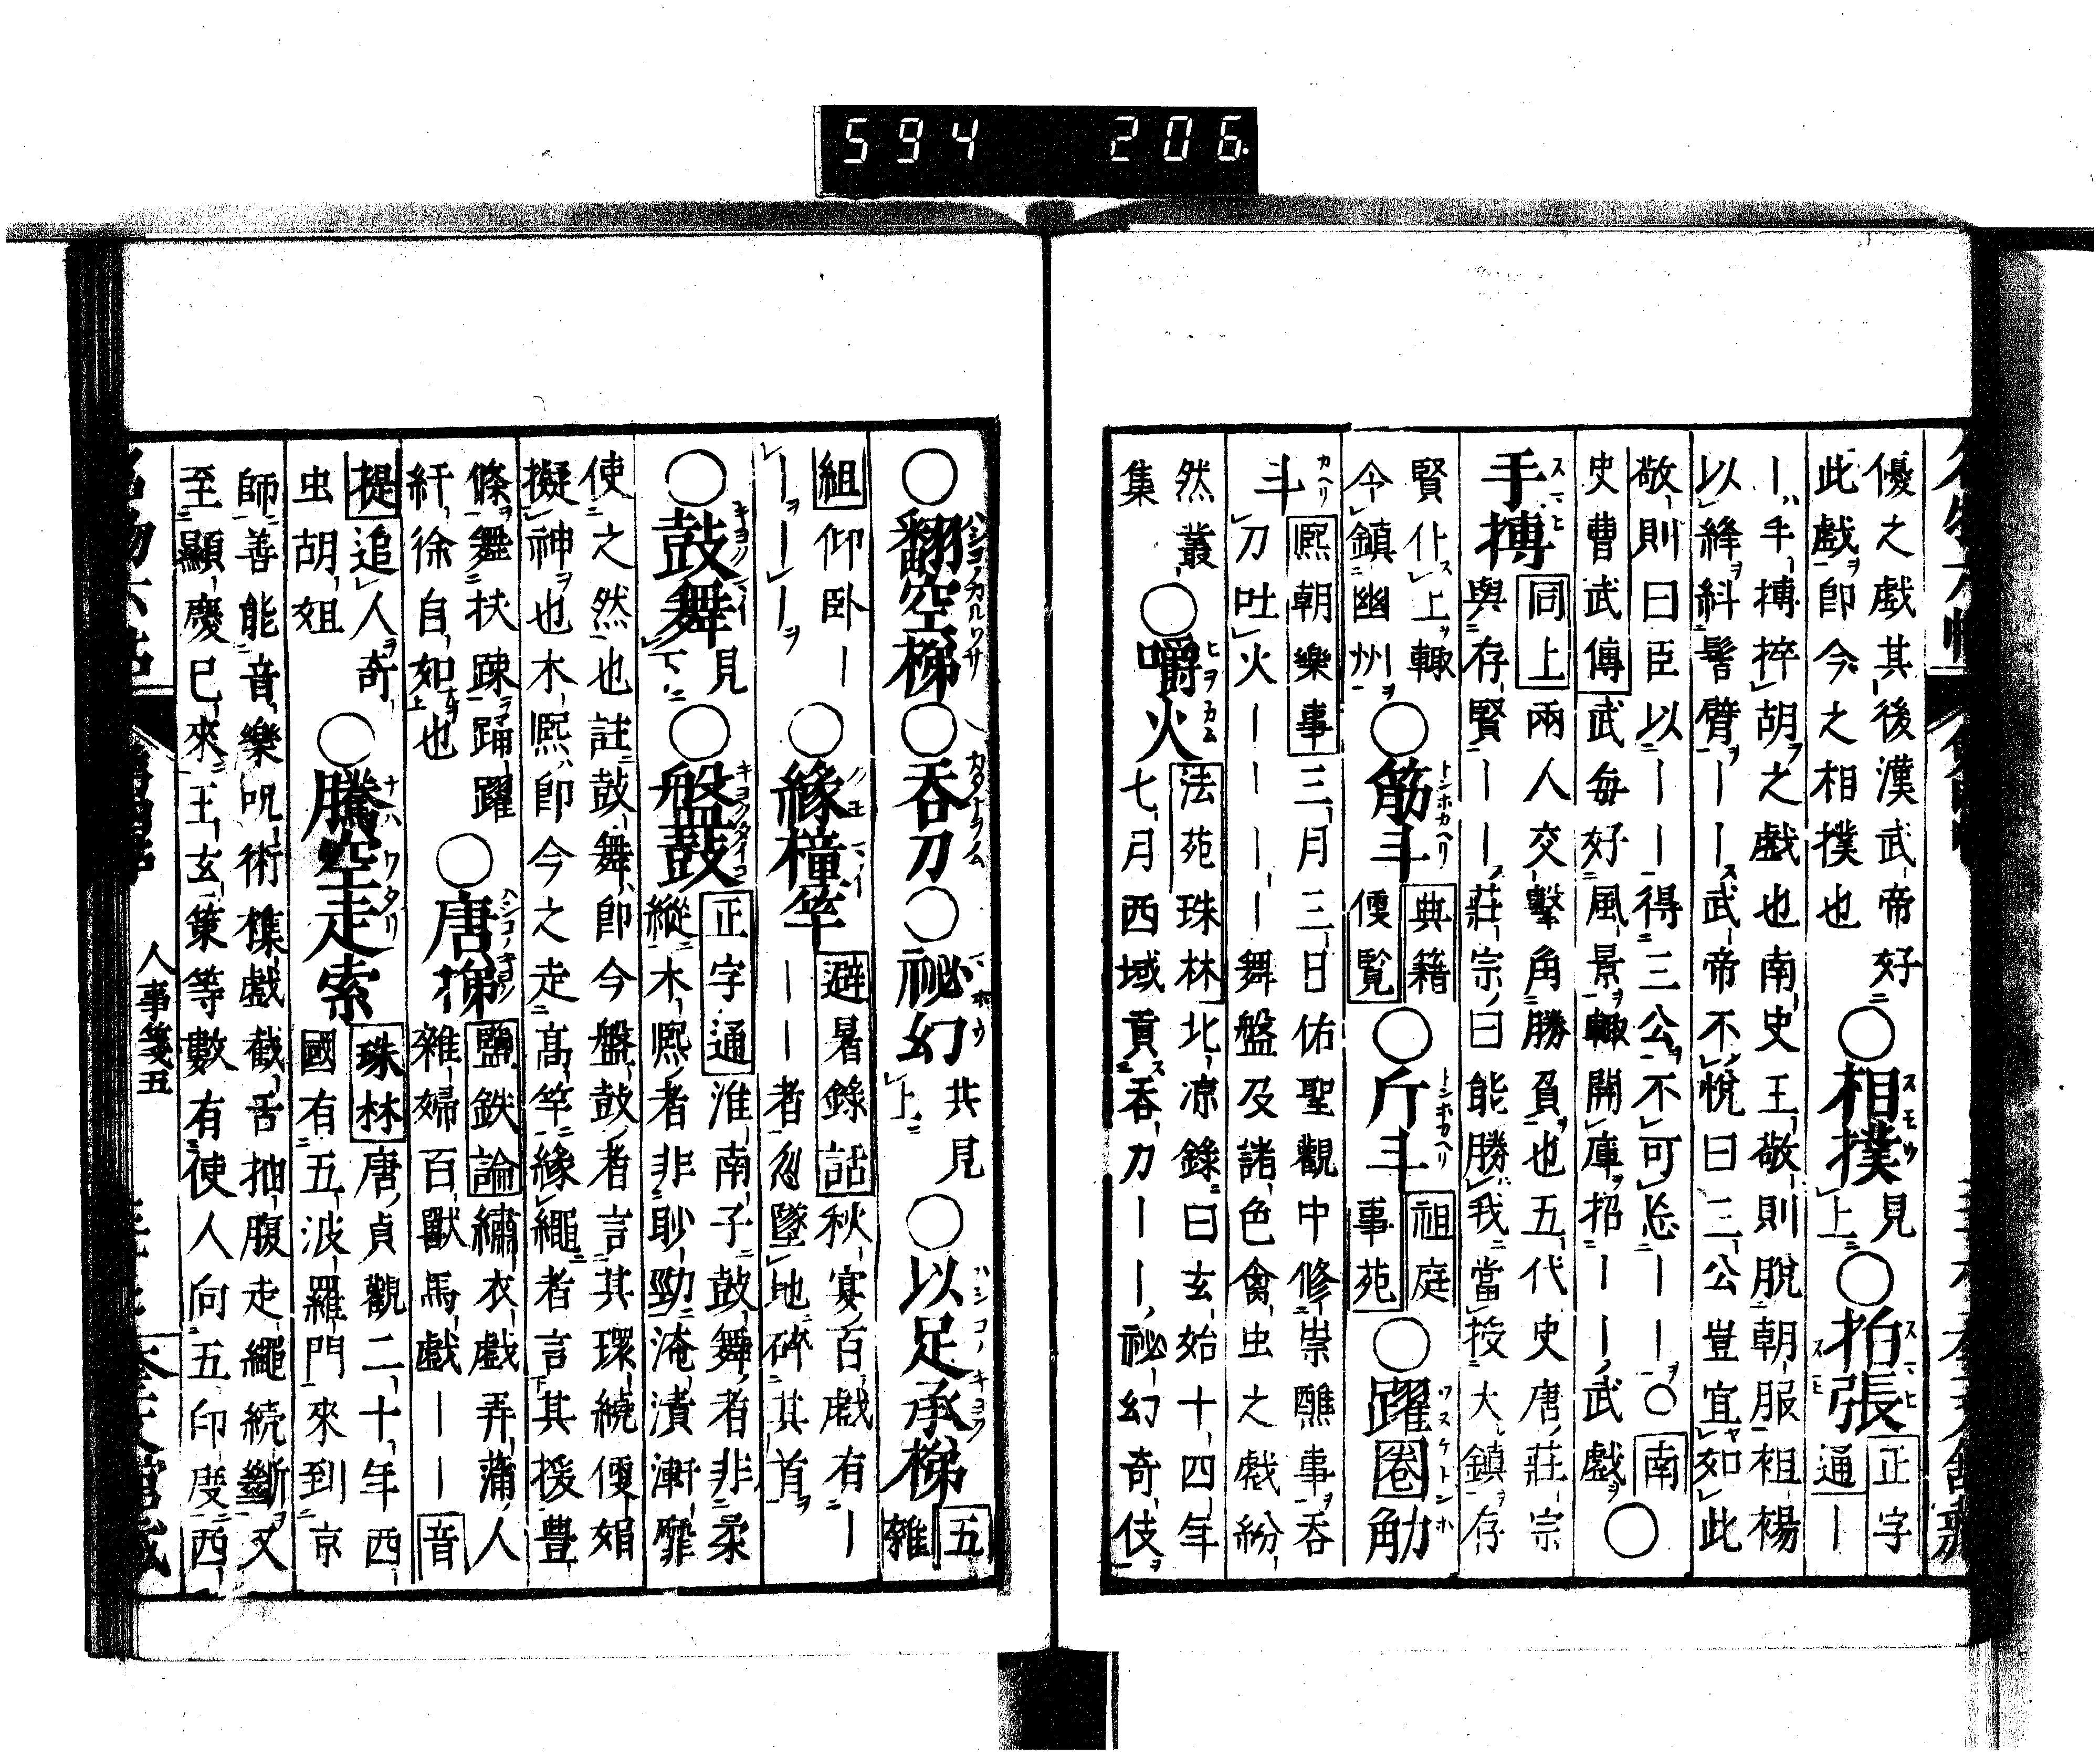 優之戲其後漢武帝好
此戲即今之相撲也
○相撲
見上
○拍張
正字
通ー
ー手搏捽胡之戲也南史王敬則脫朝服袒裼
以絳糾髻臂ーー武帝不悅曰三公豈宜如此
敬則曰臣以ーー得三公不可忘ーー○南
史曹武傳武每好風景輒開庫招ーー武戲
○手搏
同上兩人交擊角勝負也五代史唐莊宗
與存賢ーー莊宗曰能勝我當授大鎮存
賢仆上輒
今鎮幽州
○筋斗
典籍
便覧
○斤斗
祖庭
事苑
○躍圈觔
斗
熈朝樂事三月三日佑聖觀中修崇醮事吞
刀吐火ーーーー舞盤及諸色禽虫之戲紛
然叢
集
○嚼火
法苑珠林北凉錄曰玄始十四年
七月西域貢吞刀ーー祕幻奇伎
○翻空梯○吞刀○祕幻
共見
上
○以足承梯
五
雜
組仰卧ー
ーーー
○緣橦竿
避暑錄話秋宴百戲有ー
ーー者忽墜地碎其首
○鼓舞
見
下
○盤鼓
正字通淮南子鼓舞者非柔
縱木熈者非眇勁淹漬漸靡
使之然也註鼓舞即今盤鼓者言其環繞便娟
擬神也木熈即今之走高竿緣繩者言其援豊
條舞扶踈踊躍
紆徐自如也
○唐梯
鹽鉄論繡衣戲弄蒲人
雜婦百獸馬戲ーー音
提追人奇
虫胡妲
○騰空走索
珠林唐貞觀二十年西
國有五波羅門來到京
師善能音樂呪術樵戲截舌抽腹走繩続斷又
至顯慶已來王玄策等數有使人向五印度西
人事箋五
594 206